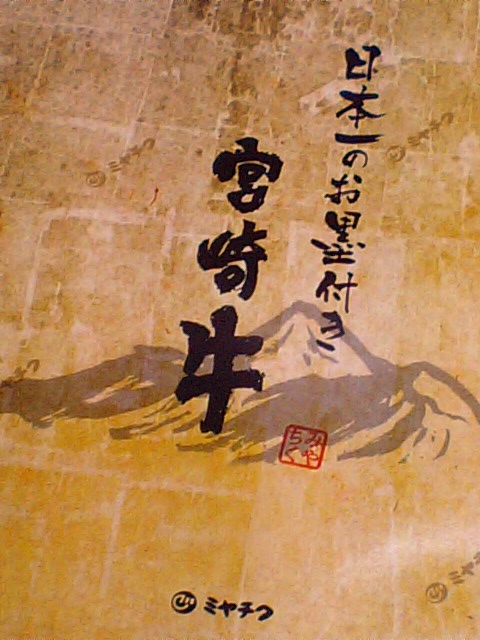 日本一のお墨付き
宮崎牛
みや
ちく
ミヤチク
ミヤチク
ミヤチク